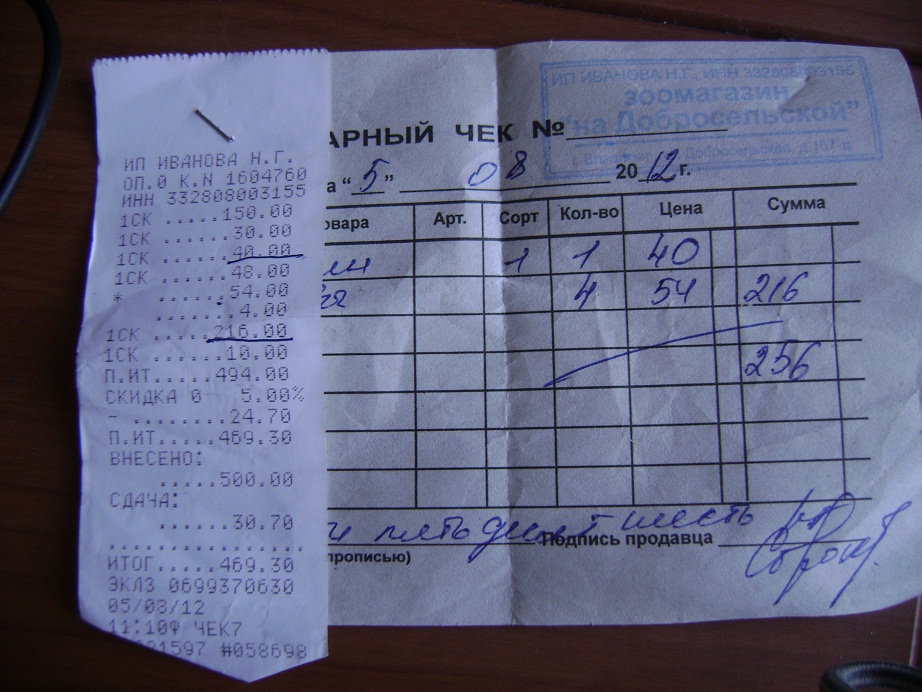 ИП ИВАНОВА Н.Г.
ОП.0 К.N 1604760
ИНН 332808003155
1СК .....150.00
1СК ......30.00
1СК ......40.00
1СК ......48.00
* ......54.00
.......4.00
1СК .....216.00
1СК ......10.00
П.ИТ.....494.00
СКИДКА 0 5.00%
- ........24.70
П.ИТ.....469.30
ВНЕСЕНО:
.....500.00
СДАЧА:
......30.70
................
ИТОГ.....469.30
ЭКЛЗ 0699370630
05/08/12
11:10Ф ЧЕК7
21597 #058698
ИП ИВАНОВА Н.Г., ИНН 332808003155
зоомагазин
"на Добросельской"
Добросельская, д.167-д
АРНЫЙ ЧЕК №
а "5" 08 2012 г.
овара Арт. Сорт Кол-во Цена Сумма
1 1 40
4 54 216
256
и пятьдесят шесть
прописью) Подпись продавца